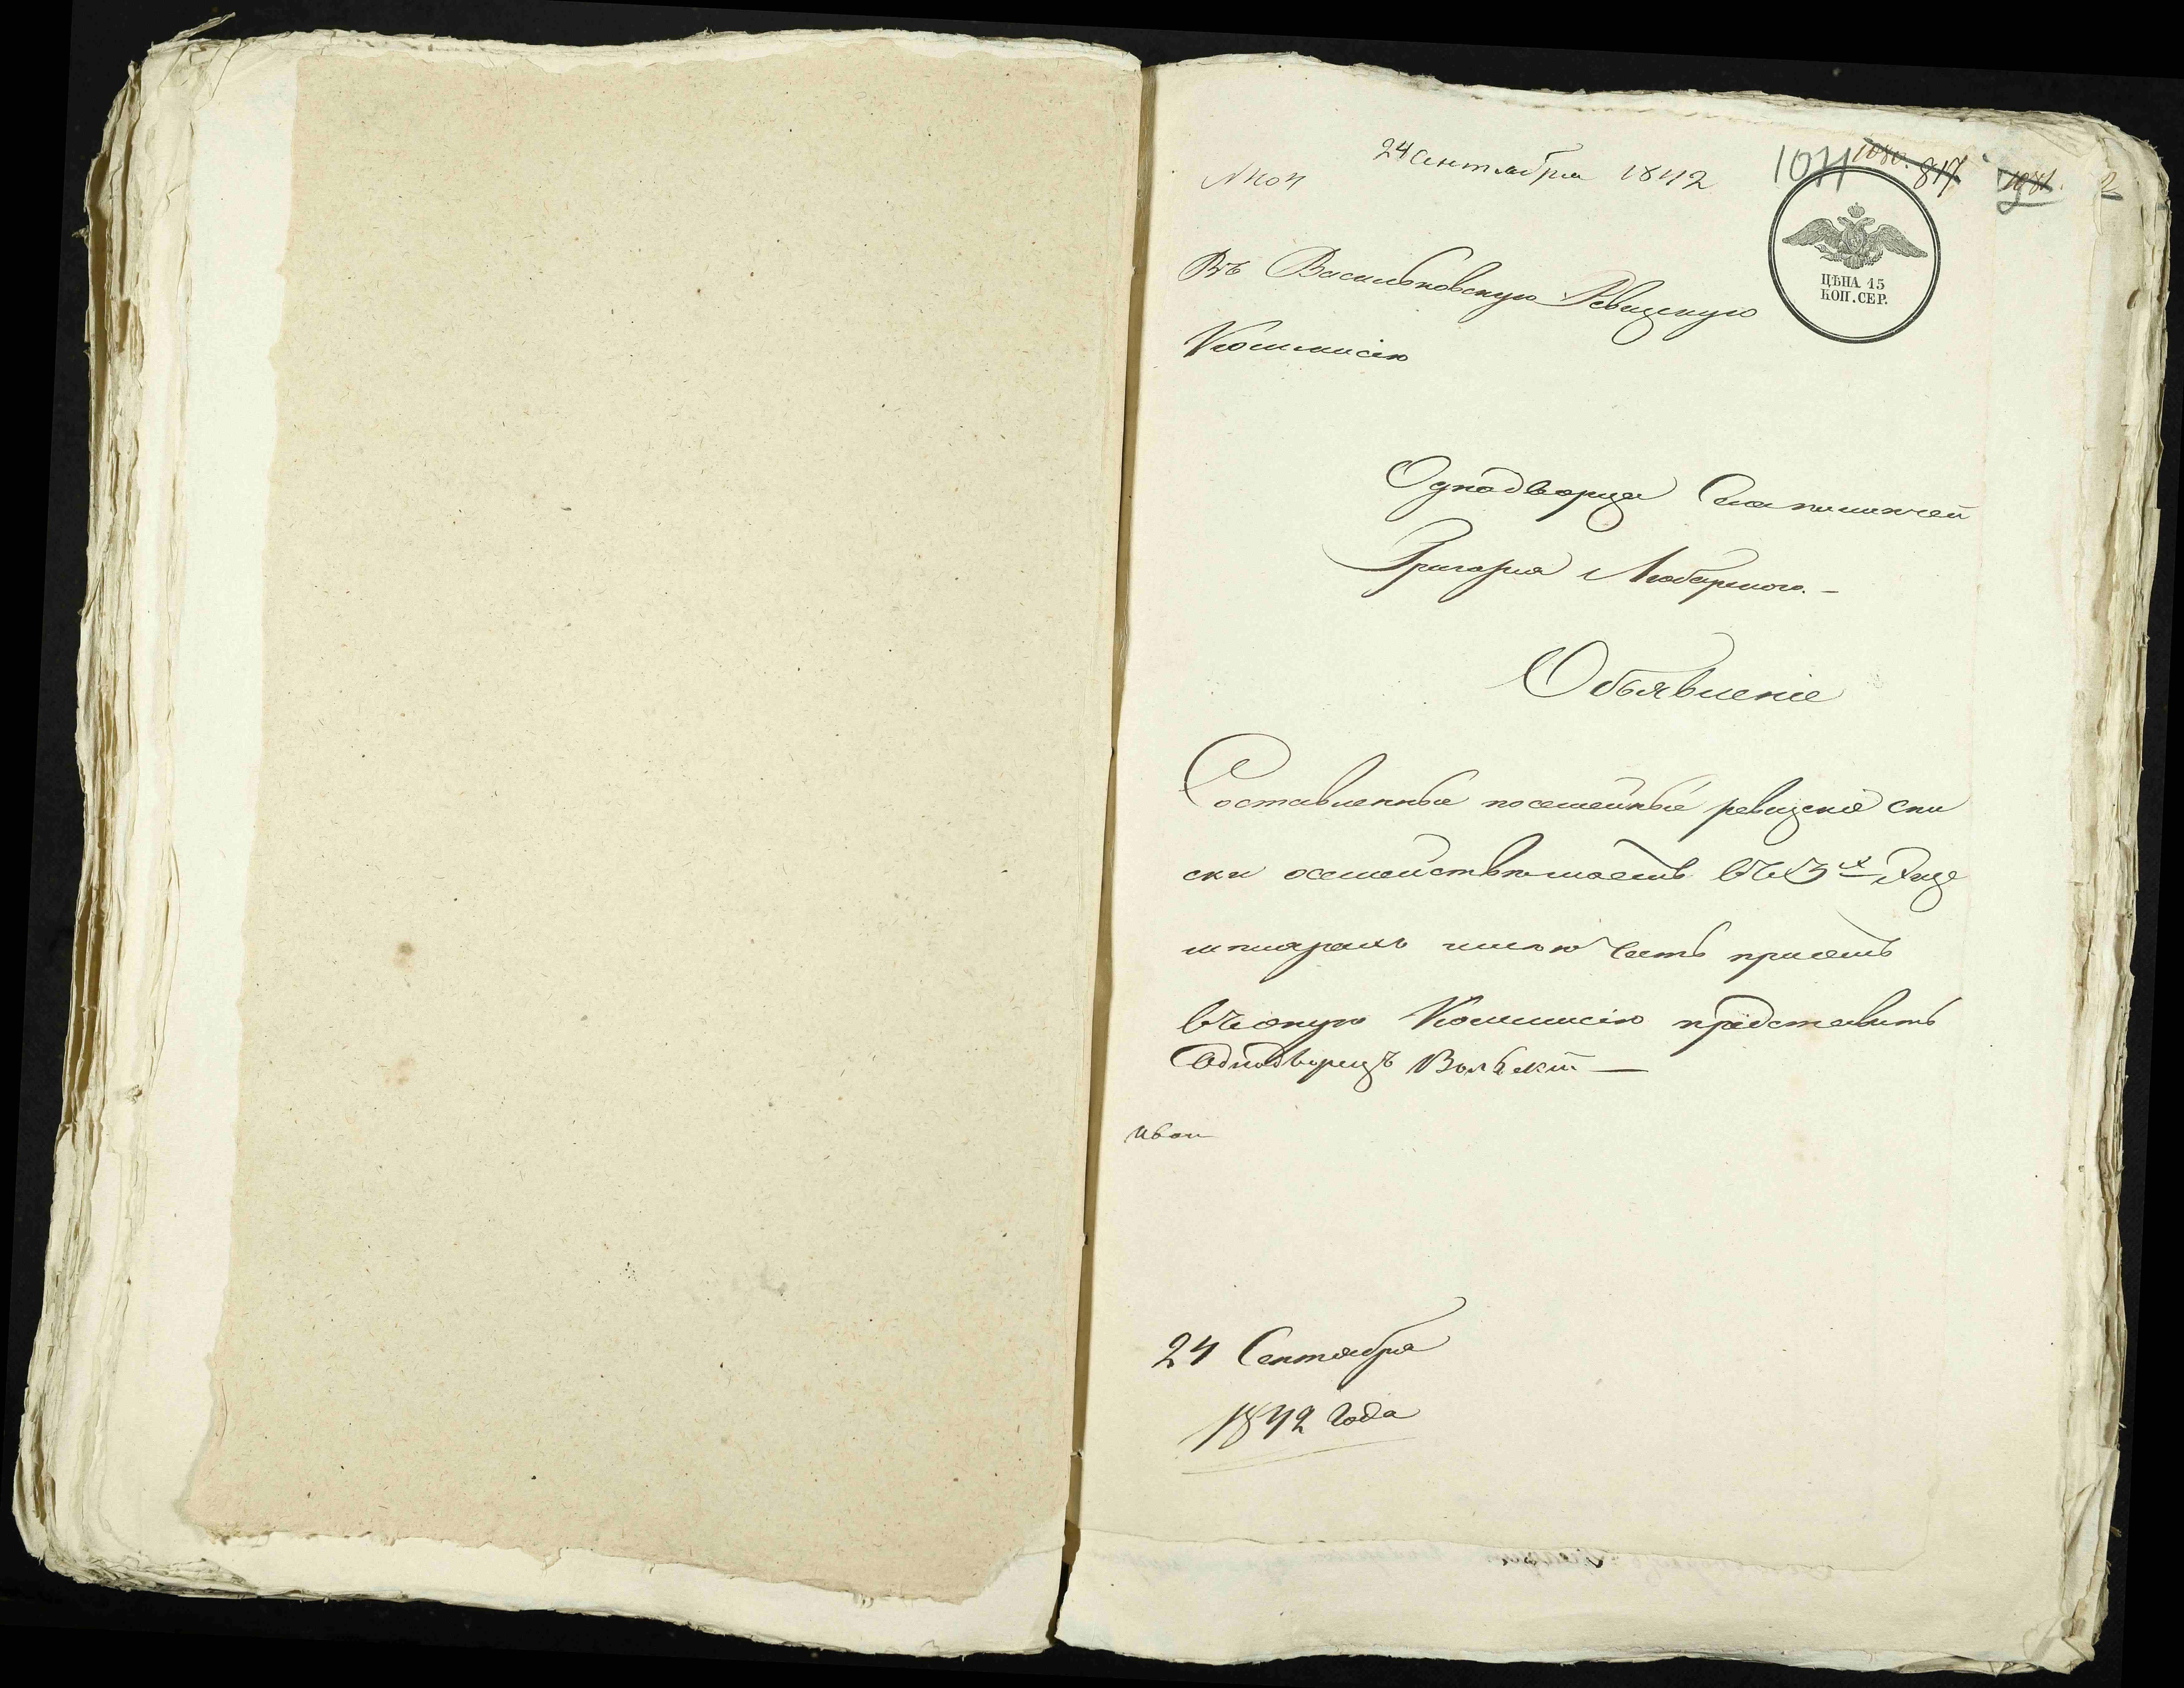 24 Сентября 1842
1071 1080. 817 1081. 2
№ 1104
ЦѢНА 15
КОП. СЕР.
Въ Васильковскую Ревизскую
Коммисію
Однодворца
Григорія Любарского. -
Объявленіе
Составленные посемейные ревизскіе спи
ски о семействѣ моемъ въ 3х Экзе
мплярахъ имею честь при семъ
въ оную Коммисію представить
Однодворецъ
Иван
24 Сентября
1842 года